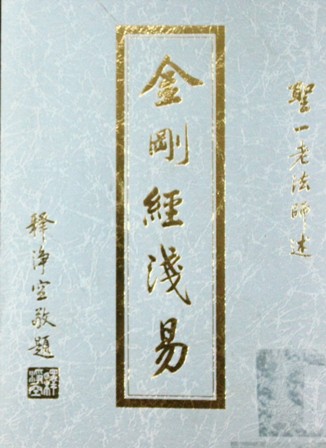 聖一老法師述
金剛經淺易
釋淨空敬題